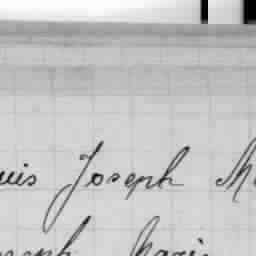 uis Joseph M
oseph Marie